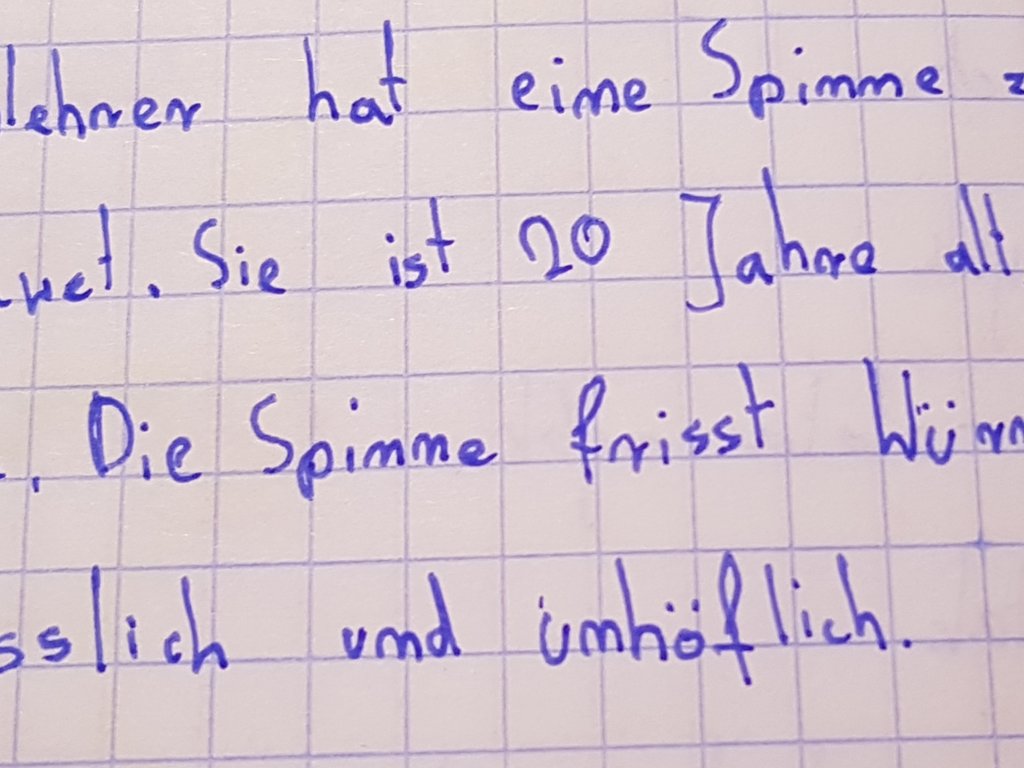 lehrer hat eine Spinne z
. Sie ist 20 Jahre alt
. Die Spinne frisst Würm
sslich und unhöflich.